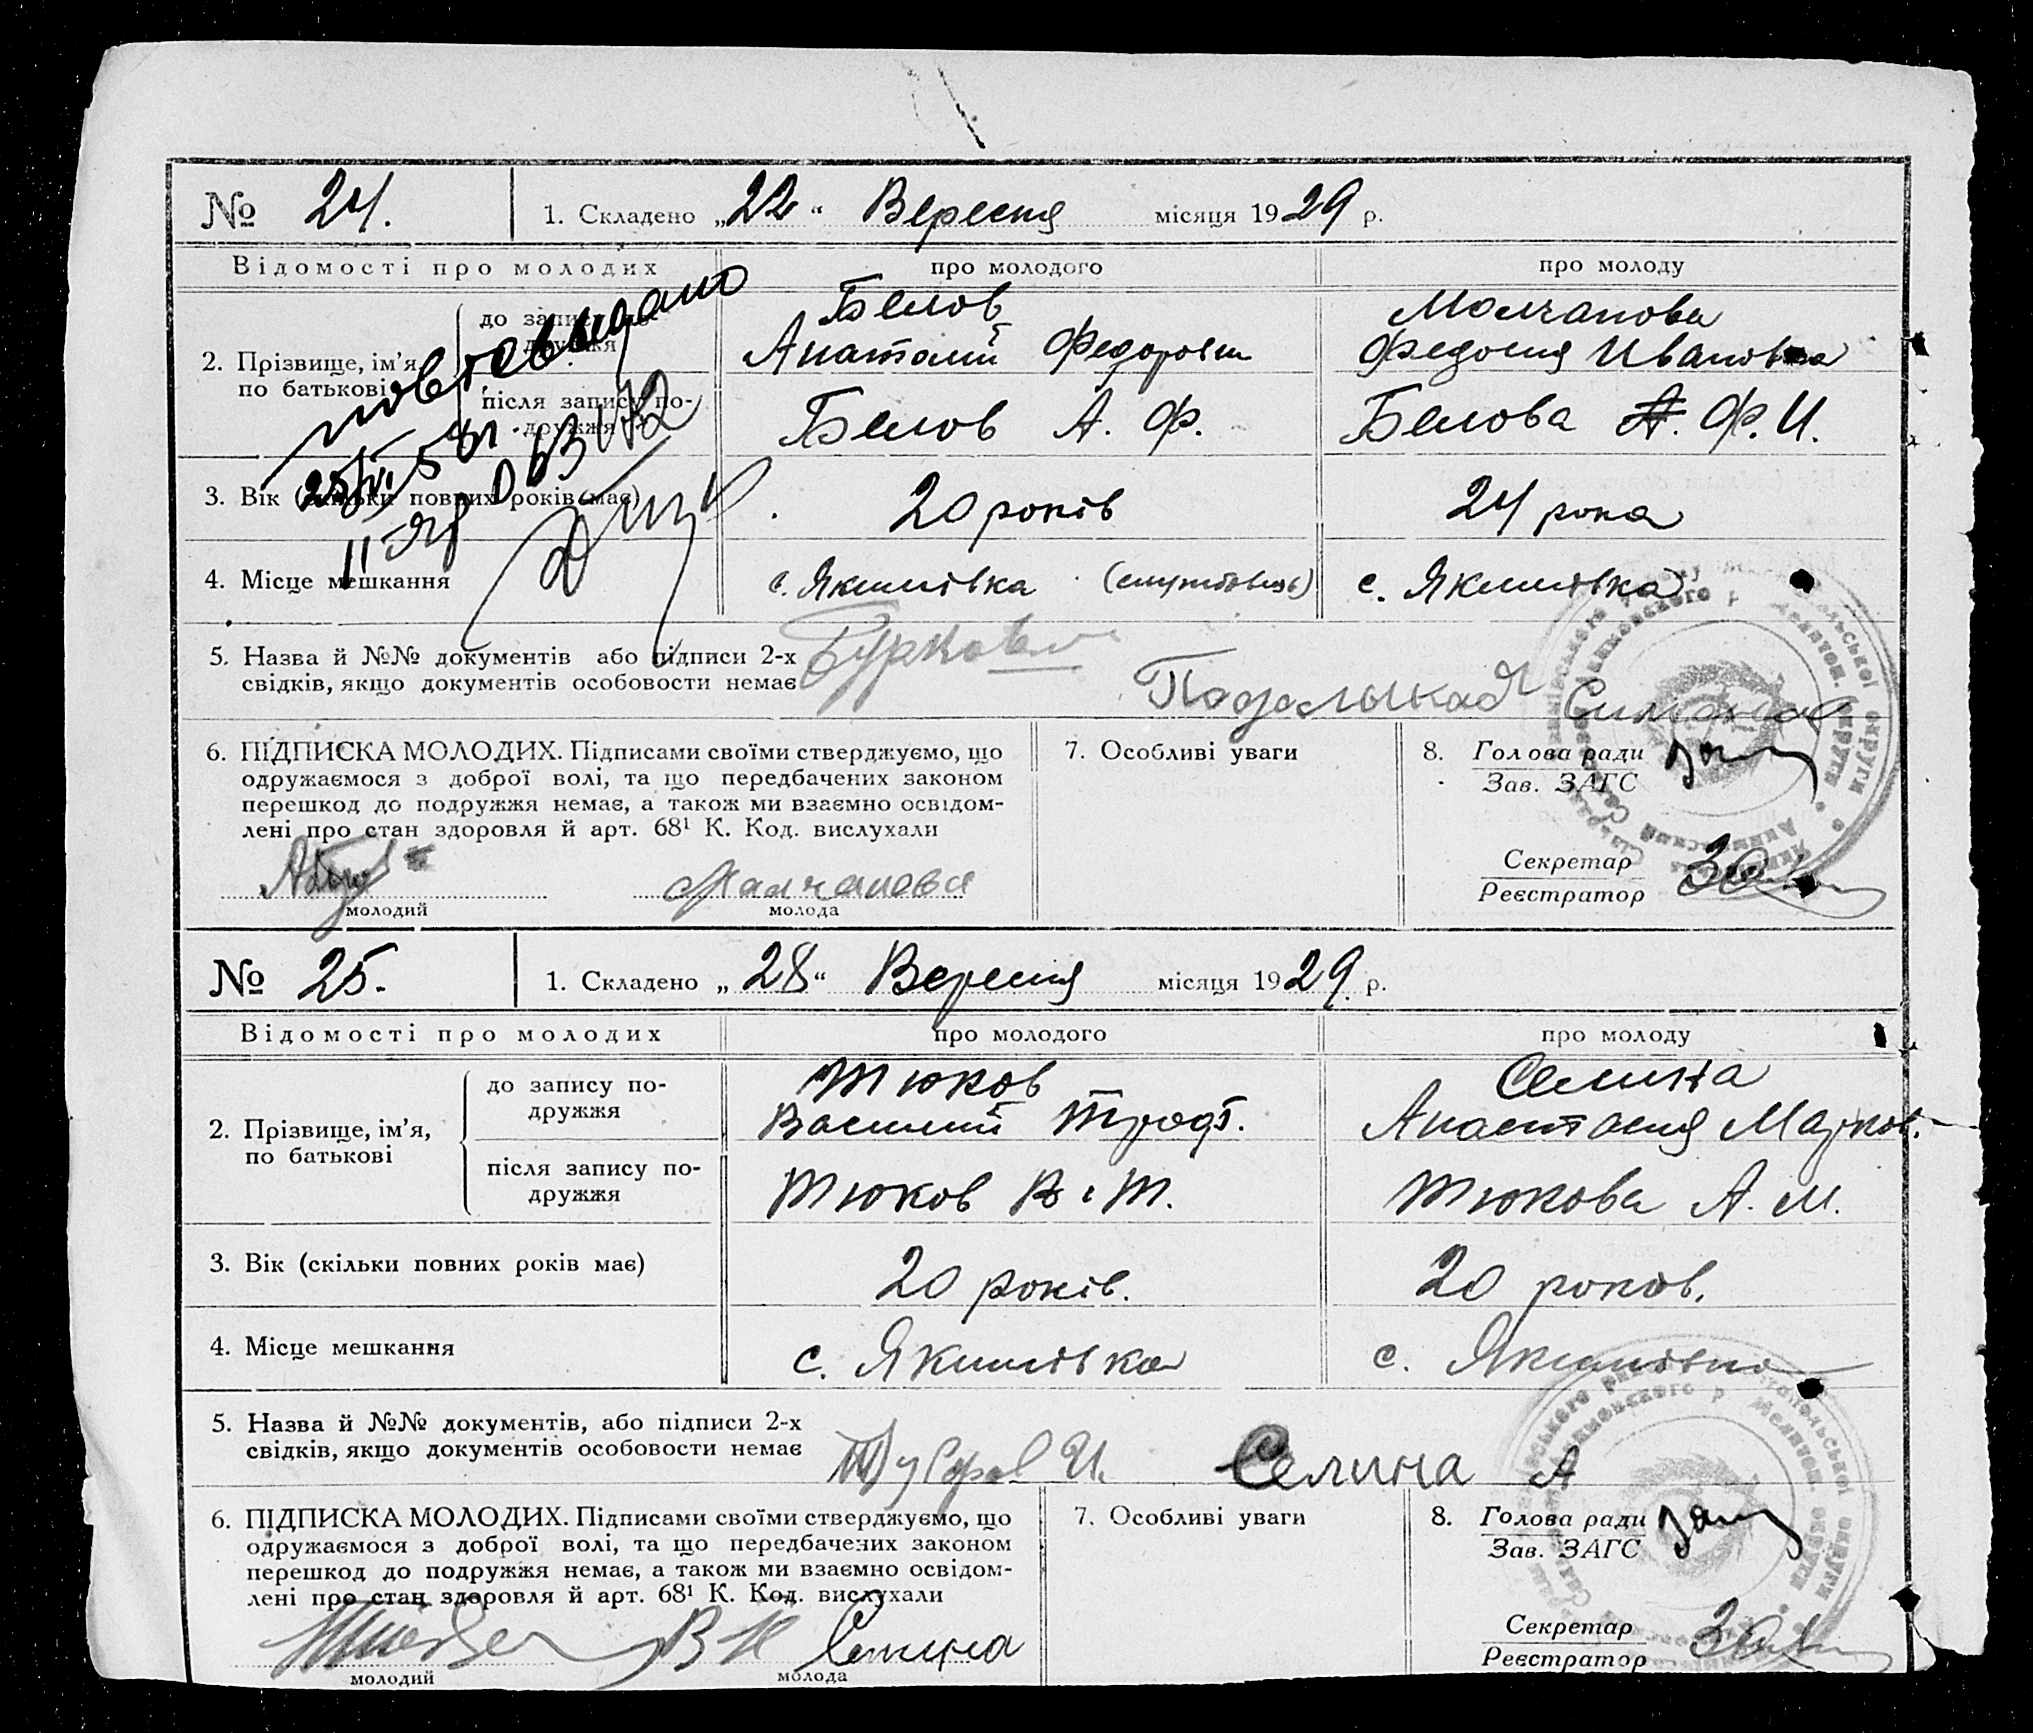 № 24. 1. Складено „22“ Вересня місяця 1929 р.
Відомості про молодих про молодого про молоду
2. Прізвище, ім’я, по батькові
до запису подружжя
Белов
Анатолій Федорович
Молчанова
Федосия Ивановна
після запису по-
дружжя
Белов А. Ф.
Белова А. Ф. И.
повт. выдано
3. Вік (скільки повних років має) 20 років 24 рока
4. Місце мешкання с. Якимівка (службовець) с. Якимівка
5. Назва й №№ документів або підписи 2-х
свідків, якщо документів особовости немає
6. ПІДПИСКА МОЛОДИХ. Підписами своїми стверджуємо, що
одружаємося з доброї волі, та що передбачених законом
перешкод до подружжя немає, а також ми взаємно освідом-
лені про стан здоровля й арт. 68¹ К. Код. вислухали
Молчанова
молодий молода
7. Особливі уваги
8. Голова ради
Зав. ЗАГС
Секретар
Реєстратор
№ 25. 1. Складено „28“ Вересня місяця 1929 р.
Відомості про молодих про молодого про молоду
2. Прізвище, ім’я,
по батькові
до запису по-
дружжя
Тюков
Василий Троф.
Селина
Анастасия Марков.
після запису по-
дружжя
Тюков В. Т.
Тюкова А. М.
3. Вік (скільки повних років має) 20 років. 20 років.
4. Місце мешкання с. Якимівка с. Якимівка
5. Назва й №№ документів, або підписи 2-х
свідків, якщо документів особовости немає
Селина А
6. ПІДПИСКА МОЛОДИХ. Підписами своїми стверджуємо, що
одружаємося з доброї волі, та що передбачених законом
перешкод до подружжя немає, а також ми взаємно освідом-
лені про стан здоровля й арт. 68¹ К. Код. вислухали
Селина
молодий молода
7. Особливі уваги
8. Голова ради
Зав. ЗАГС
Секретар
Реєстратор